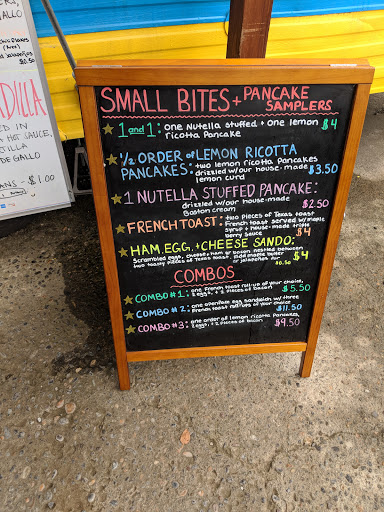 SMALL BITES + PANCAKE SAMPLERS
1 and 1: one Nutella stuffed + one lemon $4
ricotta Pancake
1/2 ORDER of LEMON RICOTTA
PANCAKES: two lemon ricotta Pancakes $3.50
drizzled w/our house-made
lemon curd
1 NUTELLA STUFFED PANCAKE:
drizzled w/our house-made $2.50
Boston cream
FRENCH TOAST: two pieces of Texas toast
French toast served w/maple
syrup + house-made triple $4
berry sauce
HAM, EGG, + CHEESE SANDO:
Scrambled eggs, cheese + ham or bacon nestled between $4
two toasty pieces of Texas toast. Add maple butter
or jalapeños for $0.50
COMBOS
COMBO #1: one French toast roll-up of your choice, $5.50
2 eggs, + 2 pieces of bacon
COMBO #2: one egg sandwich w/three $11.50
French toast roll-ups of your choice
COMBO #3: one order of lemon ricotta Pancakes, $9.50
2 eggs, + 2 pieces of bacon
ALLO
$0.50
DILLA
ED IN
HOT SAUCE,
TILLA
DE GALLO
ANS $1.00